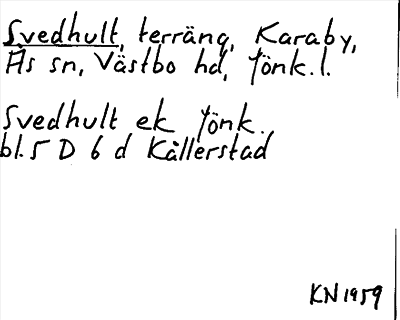 Svedhult, terräng, Karaby,
Ås sn, Västbo hd, Jönk. l.
Svedhult ek Jönk.
bl. 5 D 6 d Kållerstad
KN 1959